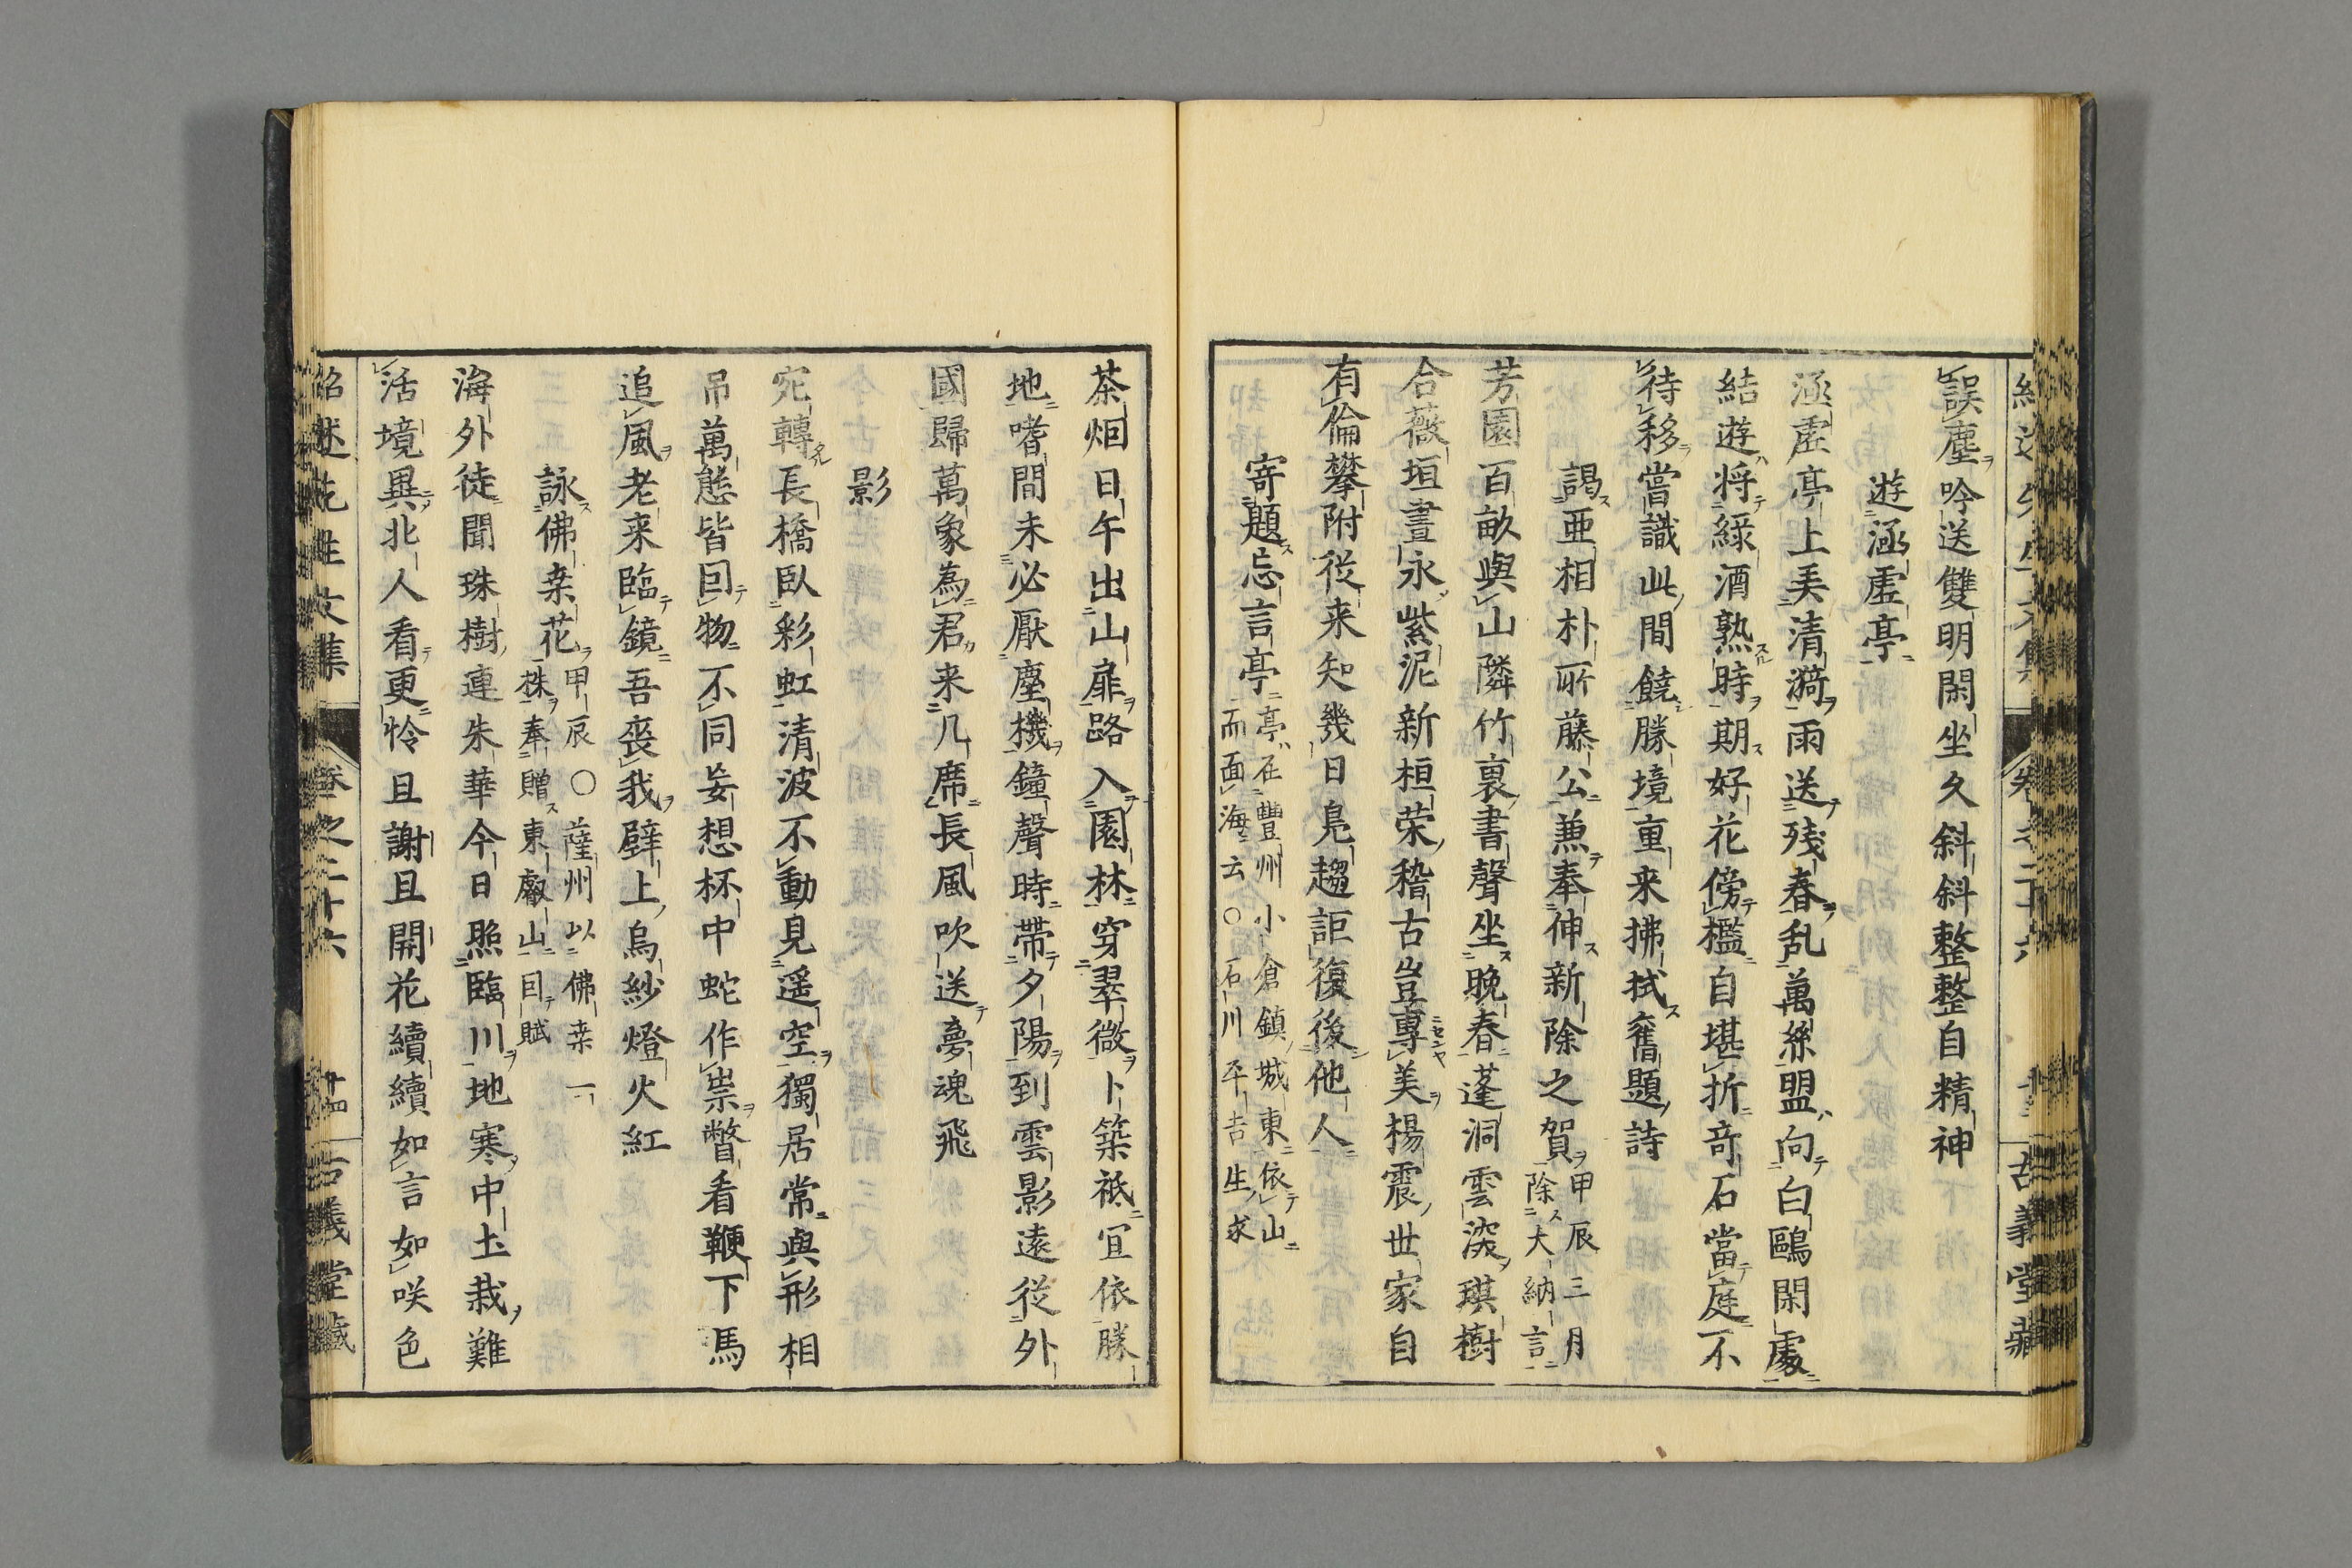 誤塵吟送雙明閑坐久斜斜整整自精神
遊涵虛亭
涵虛亭上美清漪雨送残春乱萬絲盟向白鷗閑處
結遊将綠酒熟時期好花傍檻自堪折竒石當庭不
待移嘗識此間饒勝境重来拂拭舊題詩
謁亜相朴所藤公兼奉伸新除之賀甲辰三月除大納言
芳園百畝與山隣竹裏書聲坐晚春蓬洞雲深琪樹
合薇垣晝永紫泥新桓荣稽古豈專美楊震世家自
有倫攀附従来知幾日鳧趨詎復後他人
寄題忘言亭亭在豊州小倉鎮城東依山而面海云○石川平吉生求
茶烟日午出山扉路入園林穿翠微卜築祗宜依勝
地嗜間未必厭塵機鐘聲時帶夕陽到雲影遠従外
國歸萬象為君来几席長風吹送夢魂飛
影
宛轉長橋臥彩虹清波不動見遥空獨居常與形相
吊萬態皆因物不同妄想杯中蛇作祟瞥看鞭下馬
追風老来臨鏡吾喪我壁上烏紗燈火紅
詠佛桒花甲辰○薩州以佛桒一株奉贈東叡山因賦
海外徒聞珠樹連朱華今日照臨川地寒中土栽難
活境異北人看更怜且謝且開花續續如言如咲色
紹述先生文集 卷之二十六 十四 古義堂藏